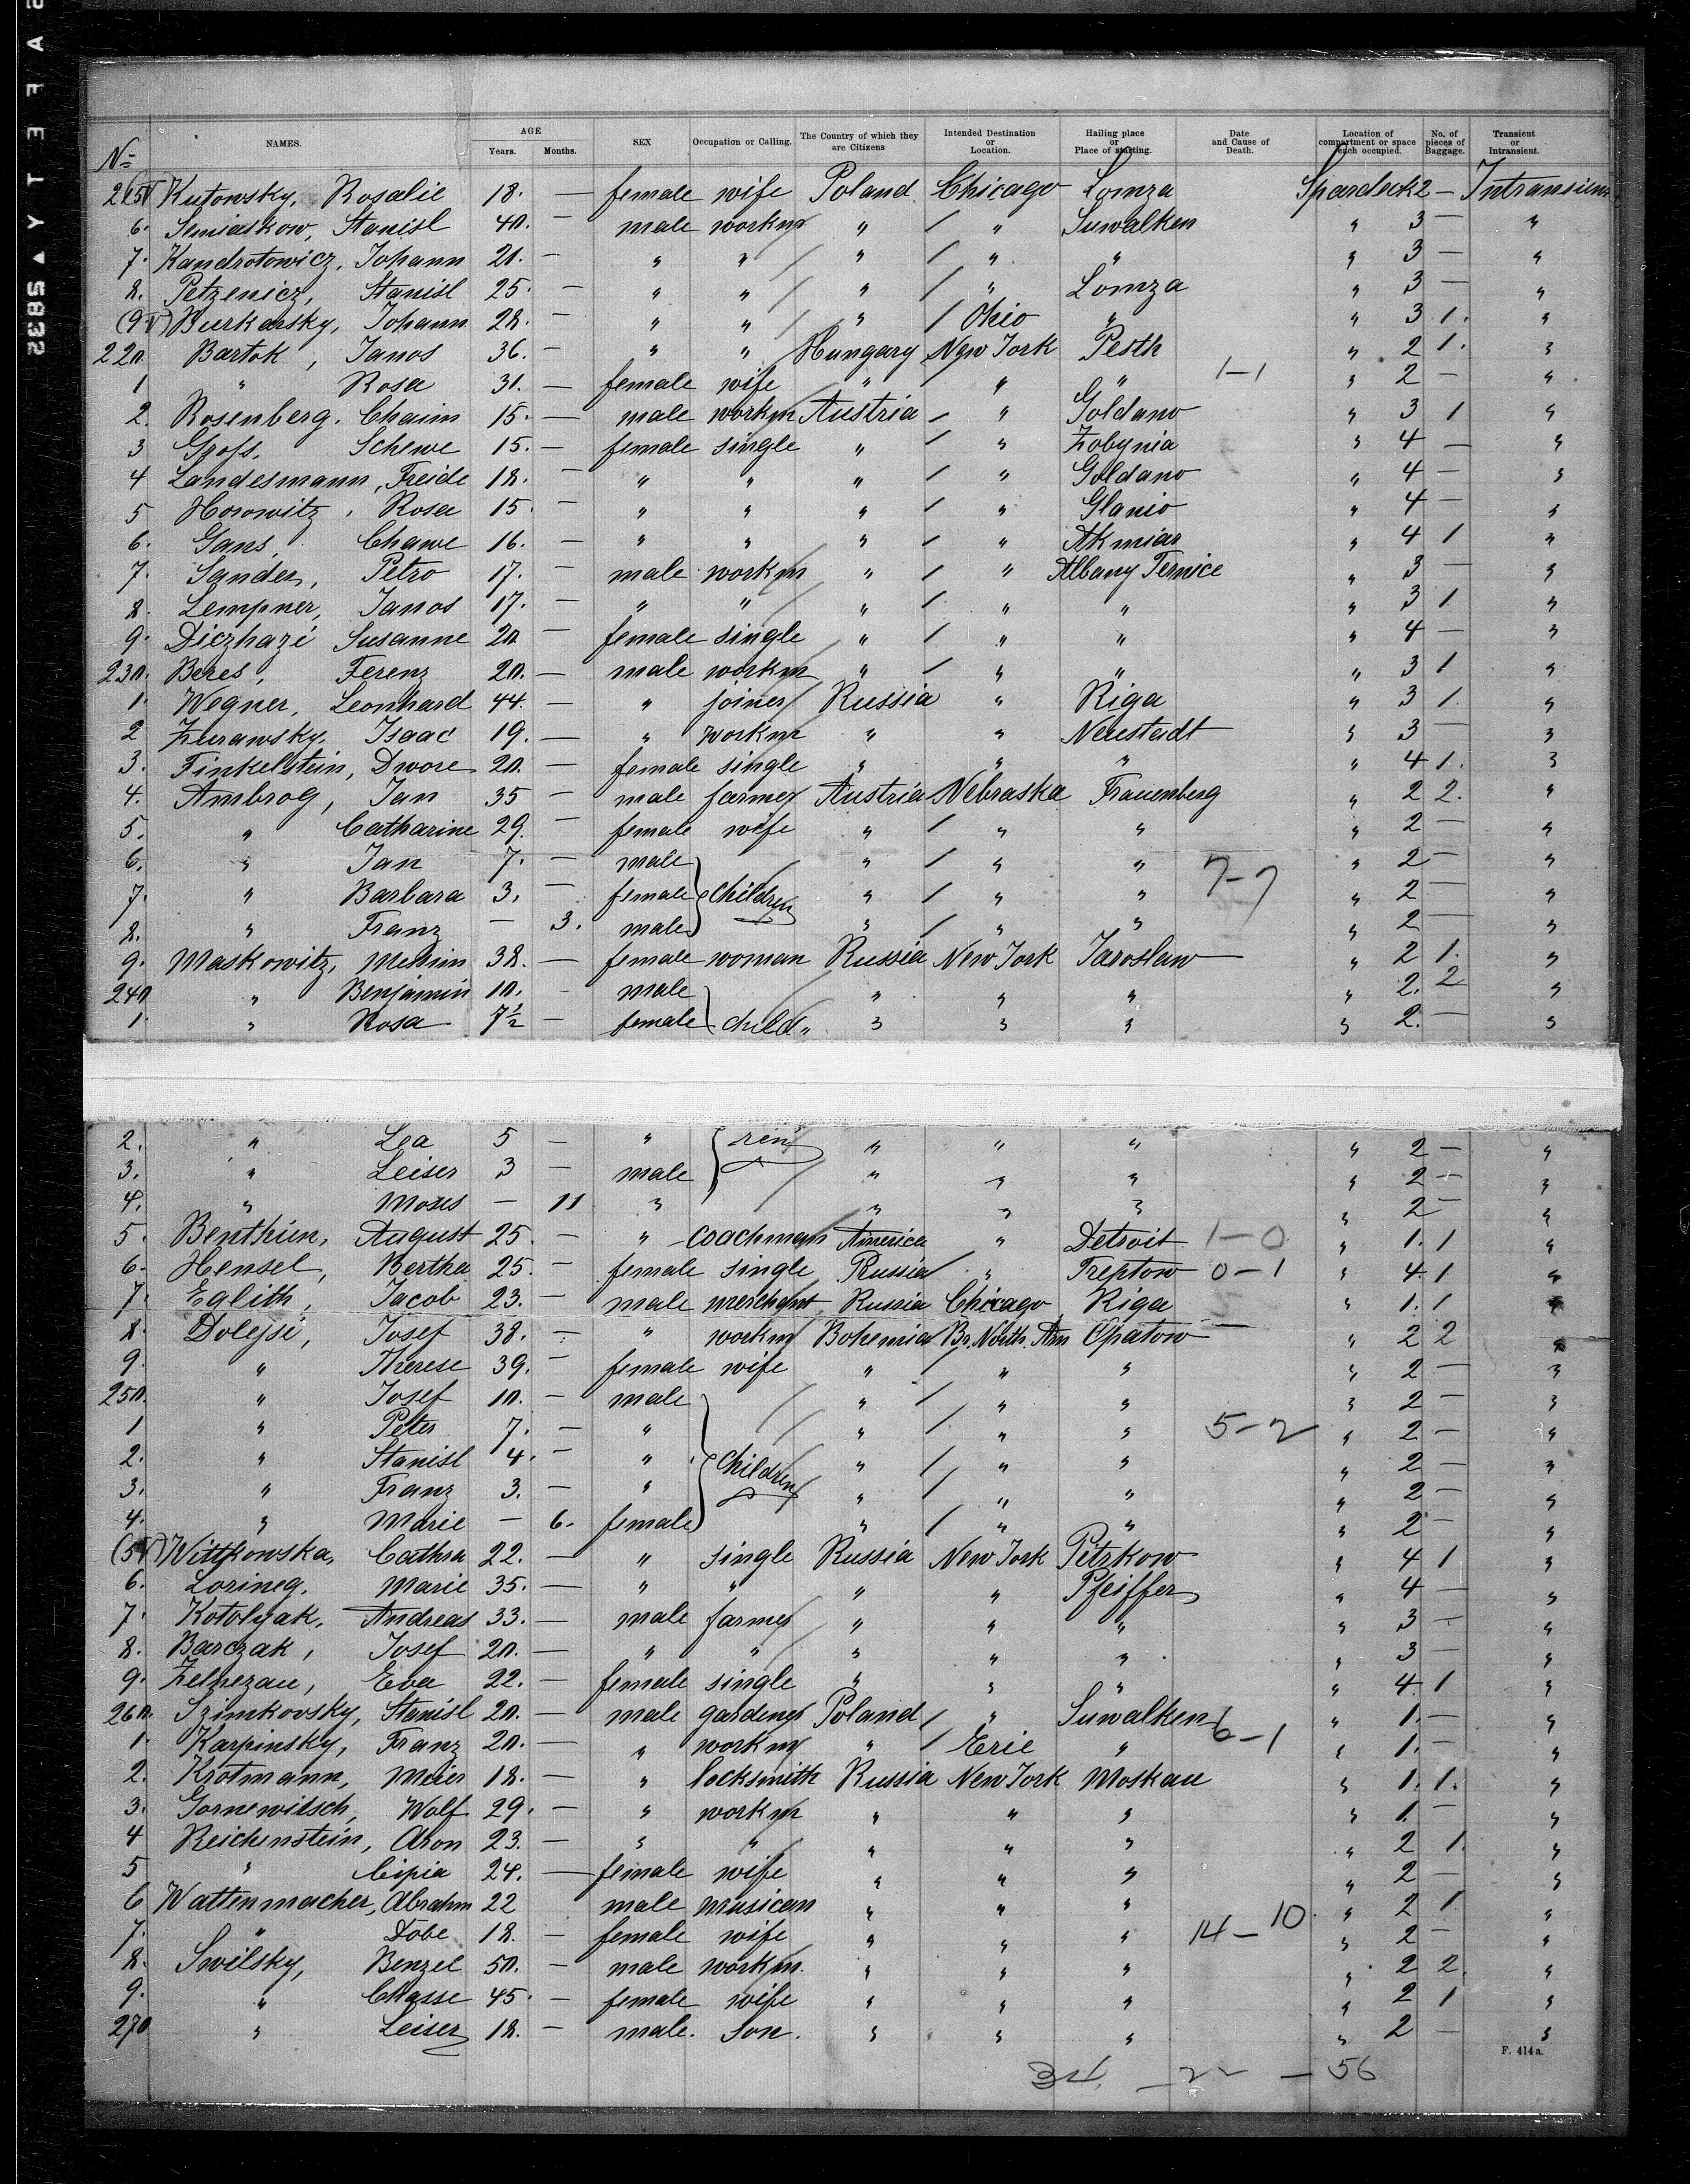 SAFETY ▲ 5832
No NAMES. AGE Years. Months. SEX Occupation or Calling. The Country of which they are Citizens Intended Destination or Location. Hailing place or Place of starting. Date and Cause of Death. Location of compartment or space each occupied. No. of pieces of Baggage. Transient or Intransient.
215 Kutowsky, Rosalie 18. — female wife Poland Chicago Lomza Spardeck 2 — Intransient
6. Semiaskow, Stanisl 40. — male workm " / " Suwalken " 3 — "
7. Kandrotowicz, Johann 21. — " " " / " " " 3 — "
8. Petzenicz, Stanisl 25. — " " " / " Lomza " 3 — "
(9) Burkarsky, Johann 28. — " " " / Ohio " " 3 1. "
220 Bartok, Janos 36. — " " Hungary New York Pesth " 2 1. "
1 " Rosa 31. — female wife " / " " 1-1 " 2 — "
2. Rosenberg, Chaim 15. — male workm Austria / " Goldano " 3 1 "
3 Gross, Schewe 15. — female single " / " Zobynia " 4 — "
4 Landesmann, Freide 18. — " " " / " Goldano " 4 — "
5 Horowitz, Rosa 15. — " " " / " Glanio " 4 — "
6. Gans, Chawe 16. — " " " / " Akmiar " 4 1 "
7. Sander, Petro 17. — male workm " / " Albany Ternice " 3 — "
8. Lempner, Janos 17. — " " " / " " " 3 1 "
9. Diczhazi Susanne 20 — female single " / " " " 4 — "
230. Beres, Ferenz 20. — male workm " / " " " 3 1 "
1. Wegner, Leonhard 44. — " joiner Russia " Riga " 3 1. "
2 Zurawsky, Isaac 19. — " workm " " Neustadt " 3 — "
3. Finkelstein, Dwore 20. — female single " " " " 4 1. "
4. Ambrog, Jan 35 — male farmer Austria Nebraska Frauenberg " 2 2. "
5. " Catharine 29. — female wife " / " " " 2 — "
6. " Jan 7. — male " / " " 7-7 " 2 — "
7. " Barbara 3. — female Children " / " " " 2 — "
8. " Franz — 3. male " / " " " 2 — "
9. Maskowitz, Menim 38. — female woman Russia New York Jaroslaw " 2 1. "
240 " Benjamin 10. — male " " " " 2. 2 "
1. " Rosa 7½ — female child " " " " " 2. — "
2. " Lea 5 — " ren " " " " 2 — "
3. " Leiser 3 — male " " " " 2 — "
4. " Moses — 11 " " " " " 2 — "
5. Benthin, August 25. — " coachman America " Detroit 1-0 " 1. 1 "
6. Hensel, Bertha 25. — female single Russia / " Treptow 0-1 " 4. 1 "
7. Eglith, Jacob 23. — male merchant Russia Chicago Riga " 1. 1 "
8. Dolejsi, Josef 38. — " workm Bohemia Br. North. Am Opatow " 2 2 "
9. " Therese 39. — female wife " / " " " 2 — "
250. " Josef 10. — male " / " " " 2 — "
1 " Peter 7. — " " / " " 5-2 " 2 — "
2. " Stanisl 4. — " Children " / " " " 2 — "
3. " Franz 3. — " " / " " " 2 — "
4. " Marie — 6. female " / " " " 2 — "
(5) Wittkowska, Cathra 22. — " single Russia New York Petrkow " 4 1 "
6. Lorineg, Marie 35. — " " " " Pfeiffer " 4 — "
7. Kotolyak, Andreas 33. — male farmer " " " " 3 — "
8. Barczak, Josef 20. — " " " " " " 3 — "
9. Zelnezau, Eva 22. — female single " " " " 4. 1 "
260. Szimkovsky, Stanisl 20. — male gardener Poland / " Suwalken 6-1 " 1. — "
1. Karpinsky, Franz 20. — " workm " / Erie " " 1. — "
2. Krotmann, Meier 18. — " locksmith Russia New York Moskau " 1. 1. "
3. Gornewitsch, Wolf 29. — " workm " " " " 1. — "
4 Reichenstein, Aron 23. — " " " " " " 2 1. "
5 " Cipia 24. — female wife " " " " 2 — "
6 Wattenmacher, Abrahm 22 male musican " " " " 2 1. "
7. " Dobe 18. — female wife " " " 14-10 " 2 — "
8. Swilsky, Benzel 50. — male workm. " " " " 2 2. "
9. " Chasse 45. — female wife " " " " 2 1 "
270 " Leiser 18. — male. son. " " " " 2 — "
F. 414 a.
34 — 22 — 56